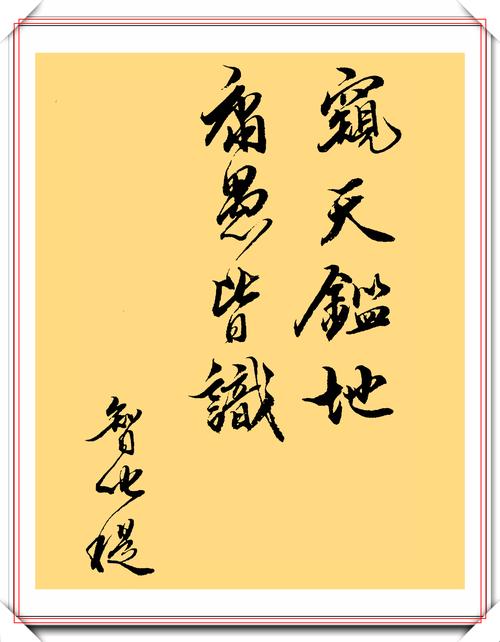 窺天鑑地
庸愚皆識
智